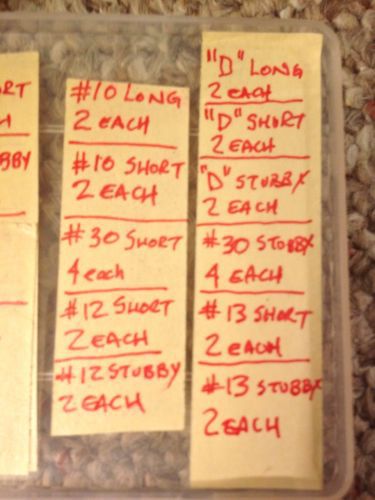 RT
H
BBY
#10 LONG
2 EACH
#10 SHORT
2 EACH
#30 SHORT
4 each
#12 SHORT
2 EACH
#12 STUBBY
2 EACH
"D" LONG
2 EACH
"D" SHORT
2 EACH
"D" STUBBY
2 EACH
#30 STUBBY
4 EACH
#13 SHORT
2 EACH
#13 STUBBY
2 EACH